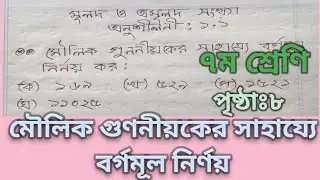 মূলদ ও অমূলদ সংখ্যা
অনুশীলনী: ১.১
মৌলিক গুননীয়কের সাহায্যে
নির্ণয় কর:
(ক) ১৬৯ (খ) ৫২৯ (গ) ১৫২১
(ঘ) ১১০২৫
৭ম শ্রেণি
পৃষ্ঠাঃ৮
মৌলিক গুণনীয়কের সাহায্যে
বর্গমূল নির্ণয়